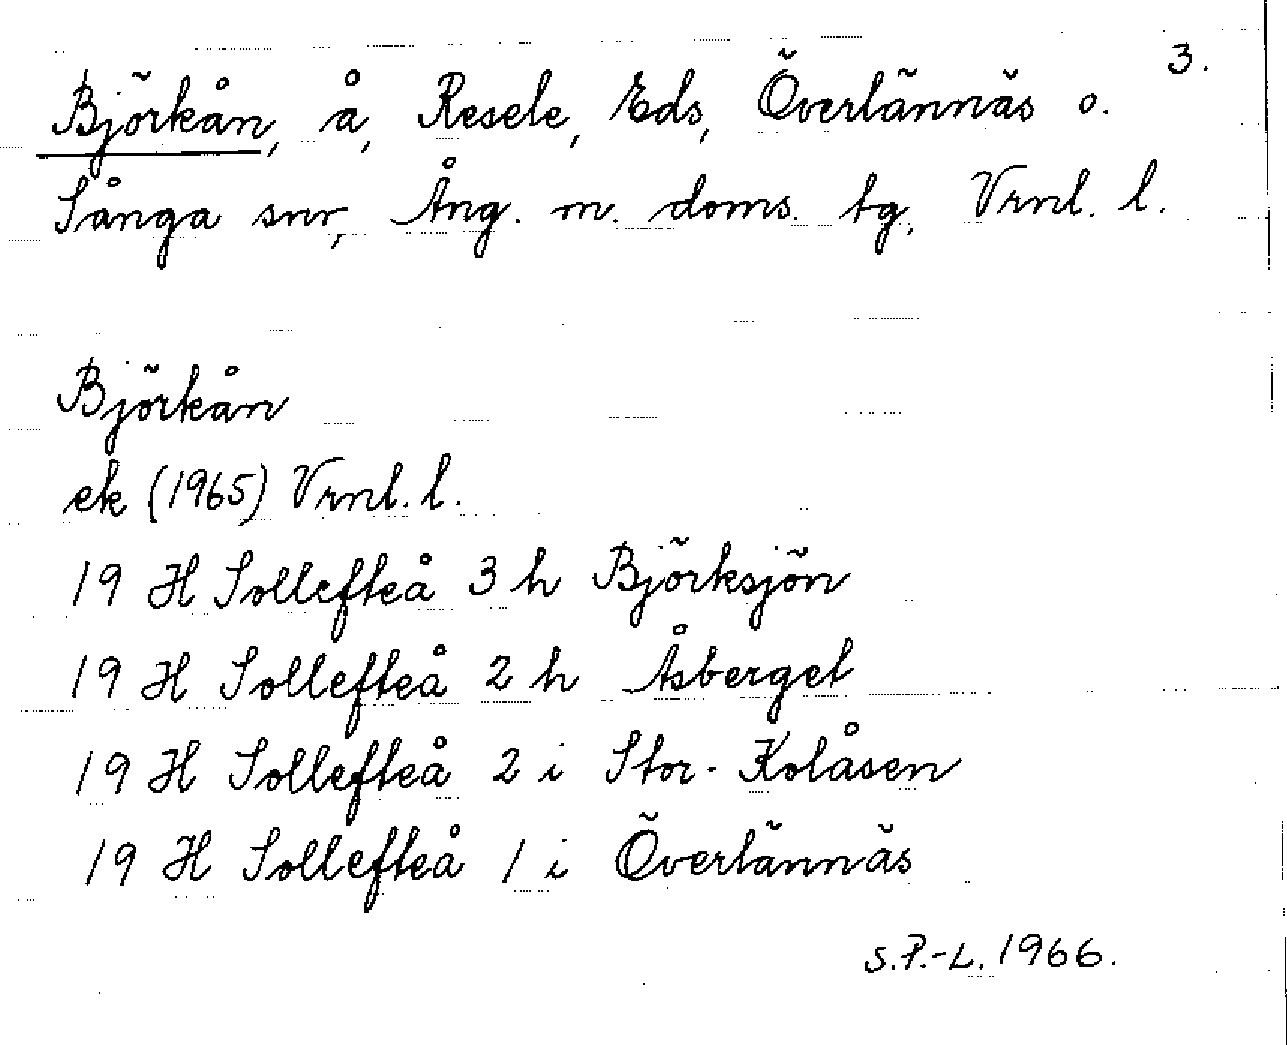 3.
Björkån, å, Resele, Eds, Överlännäs o.
Sånga snr, Ång. m. doms. tg, Vrnl. l.
Björkån
ek (1965) Vrnl. l.
19 H Sollefteå 3 h Björksjön
19 H Sollefteå 2 h Åsberget
19 H Sollefteå 2 i Stor-Kolåsen
19 H Sollefteå 1 i Överlännäs
S.P.-L. 1966.